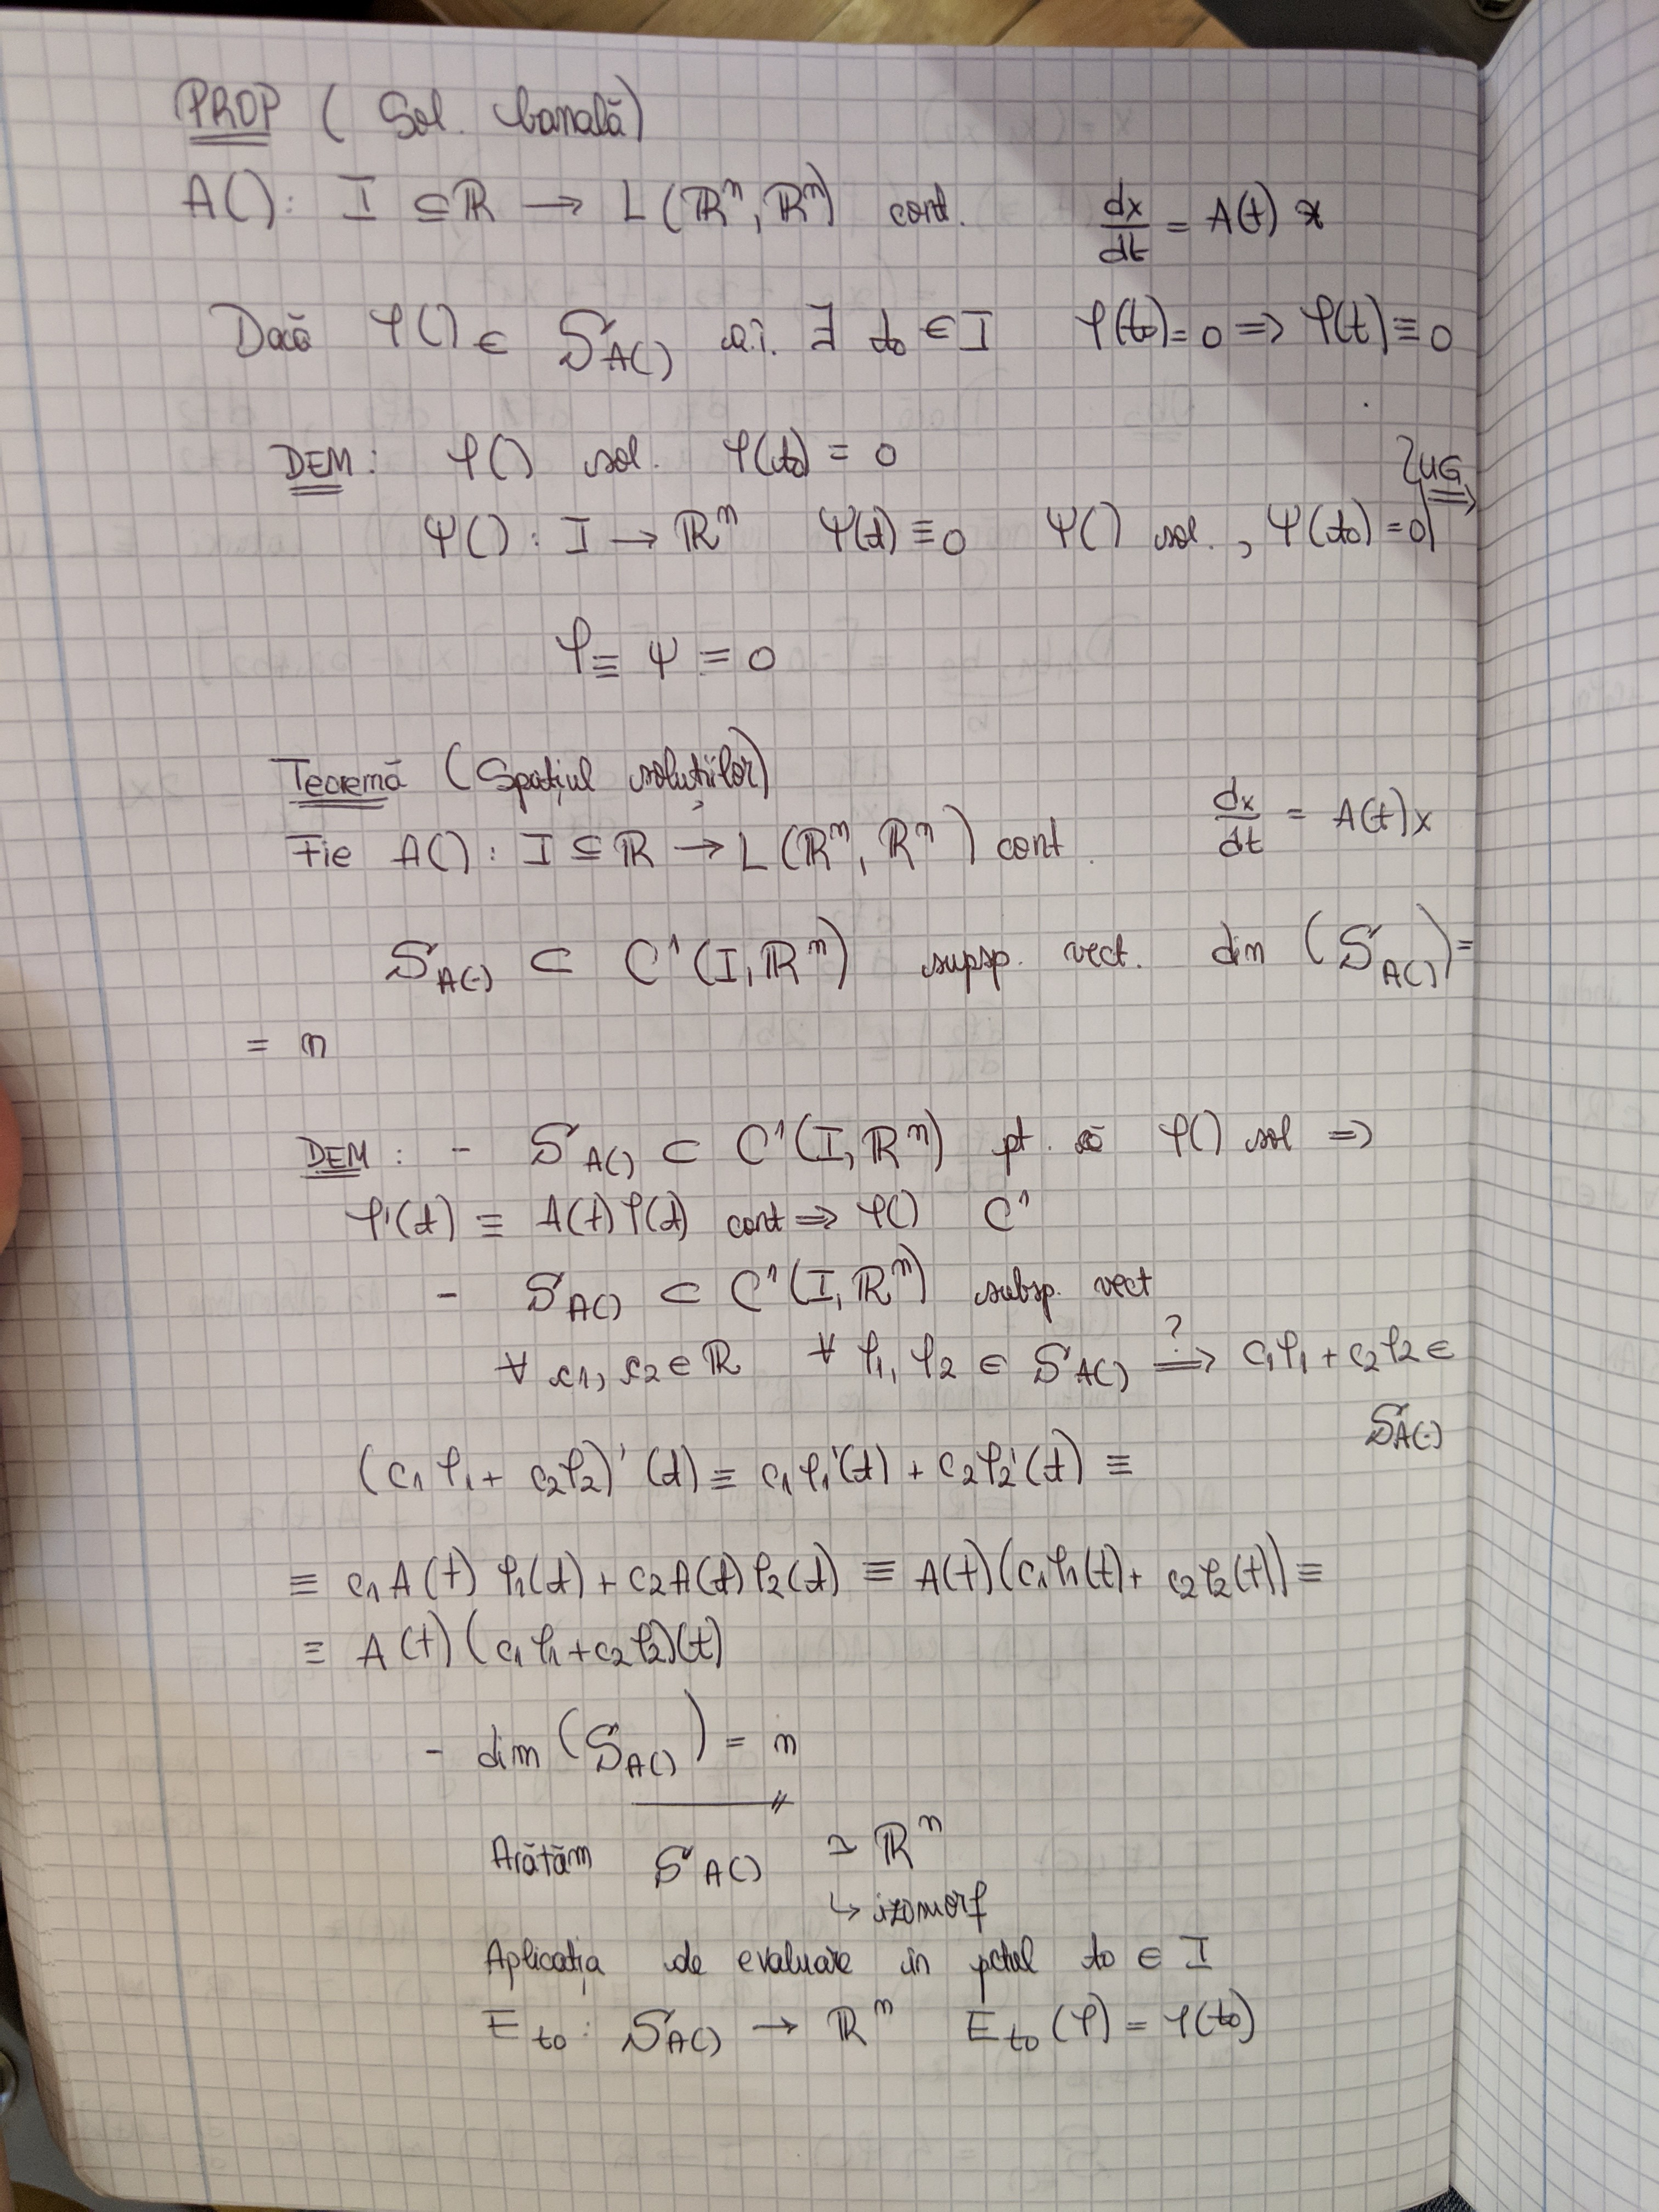 PROP ( Sol. banală)
A(): I ⊆ ℝ → L(ℝⁿ, ℝⁿ) cont. dx/dt = A(t) x
Dacă φ() ∈ S_A() a.î. ∃ t₀ ∈ I φ(t₀) = 0 ⇒ φ(t) ≡ 0
DEM: φ() sol. φ(t₀) = 0
ψ() : I → ℝⁿ ψ(t) ≡ 0 ψ() sol. , ψ(t₀) = 0 | UG ⇒
φ ≡ ψ = 0
Teoremă (Spațiul soluțiilor)
Fie A() : I ⊆ ℝ → L(ℝⁿ, ℝⁿ) cont. dx/dt = A(t)x
S_A(·) ⊂ C¹(I, ℝⁿ) supsp. vect. dim (S_A()) =
= n
DEM : - S_A() ⊂ C¹(I, ℝⁿ) pt. că φ() sol ⇒
φ'(t) ≡ A(t)φ(t) cont ⇒ φ() C¹
- S_A() ⊂ C¹(I, ℝⁿ) subsp. vect
∀ c₁, c₂ ∈ ℝ ∀ φ₁, φ₂ ∈ S_A() ?⇒ c₁φ₁ + c₂φ₂ ∈
S_A(·)
(c₁φ₁ + c₂φ₂)' (t) ≡ c₁φ₁'(t) + c₂φ₂'(t) ≡
≡ c₁A(t) φ₁(t) + c₂A(t)φ₂(t) ≡ A(t)(c₁φ₁(t) + c₂φ₂(t)) ≡
≡ A(t)(c₁φ₁ + c₂φ₂)(t)
- dim (S_A()) = n
Arătăm S_A() ≃ ℝⁿ
↳ izomorf
Aplicația de evaluare în pctul t₀ ∈ I
E_t₀ : S_A() → ℝⁿ E_t₀(φ) = φ(t₀)